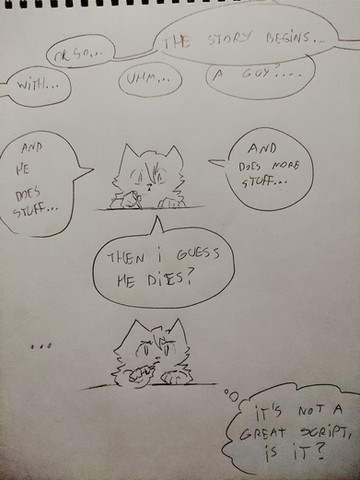 THE STORY BEGINS...
OR SO...
WITH...
UHM...
A GUY?....
AND
HE
DOES
STUFF...
AND
DOES MORE
STUFF...
THEN i GUESS
HE DiES?
...
iT'S NOT A
GREAT SCRiPT,
iS iT?